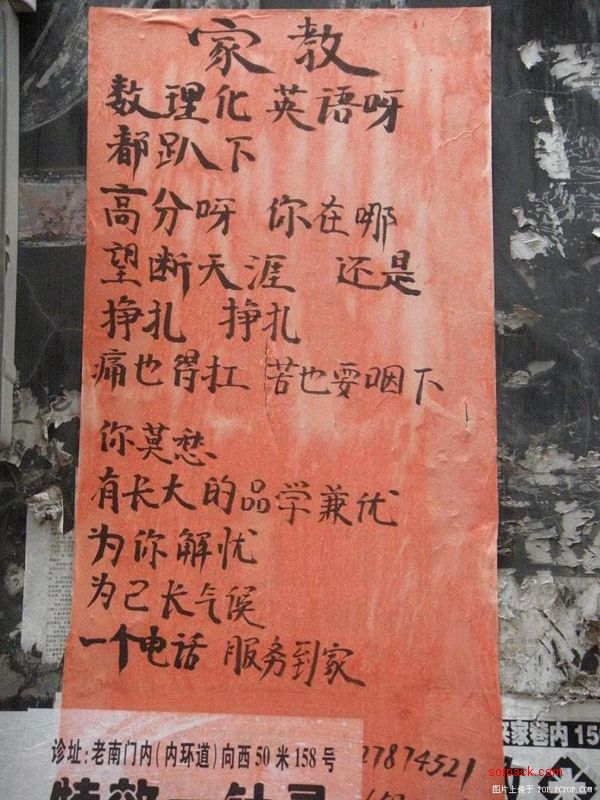 家教
数理化 英语呀
都趴下
高分呀 你在哪
望断天涯 还是
挣扎 挣扎
痛也得扛 苦也要咽下
你莫愁
有长大的品学兼优
为你解忧
为己长气候
一个电话 服务到家
诊址:老南门内(内环道)向西50米158号
27874521
巷内15
sompack.com
图片上传于 TOP.PCPOP.COM